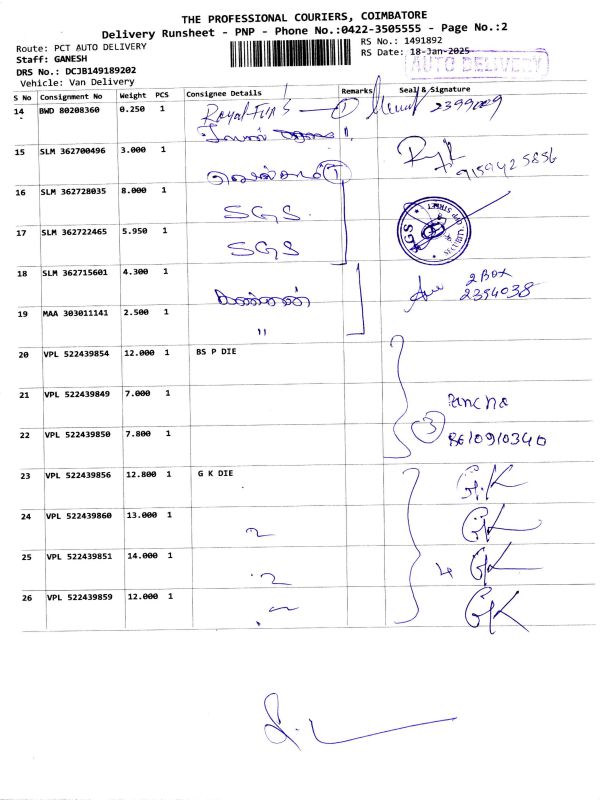 THE PROFESSIONAL COURIERS, COIMBATORE
Delivery Runsheet - PNP - Phone No.:0422-3505555 - Page No.:2
Route: PCT AUTO DELIVERY
RS No.: 1491892
Staff: GANESH
RS Date: 18-Jan-2025
DRS No.: DCJB149189202
AUTO DELIVERY
Vehicle: Van Delivery
S No Consignment No Weight PCS Consignee Details Remarks Seal & Signature
14 BWD 80208360 0.250 1 1 2399009
15 SLM 362700496 3.000 1
9159425856
1
16 SLM 362728035 8.000 1 SGS
KGS
17 SLM 362722465 5.950 1 SGS
18 SLM 362715601 4.300 1 2 BOX
2354038
19 MAA 303011141 2.500 1 "
20 VPL 522439854 12.000 1 BS P DIE
21 VPL 522439849 7.000 1
3
22 VPL 522439850 7.800 1 8610910340
23 VPL 522439856 12.800 1 G K DIE G.K
24 VPL 522439860 13.000 1 GK
25 VPL 522439851 14.000 1 4 GK
26 VPL 522439859 12.000 1 GK